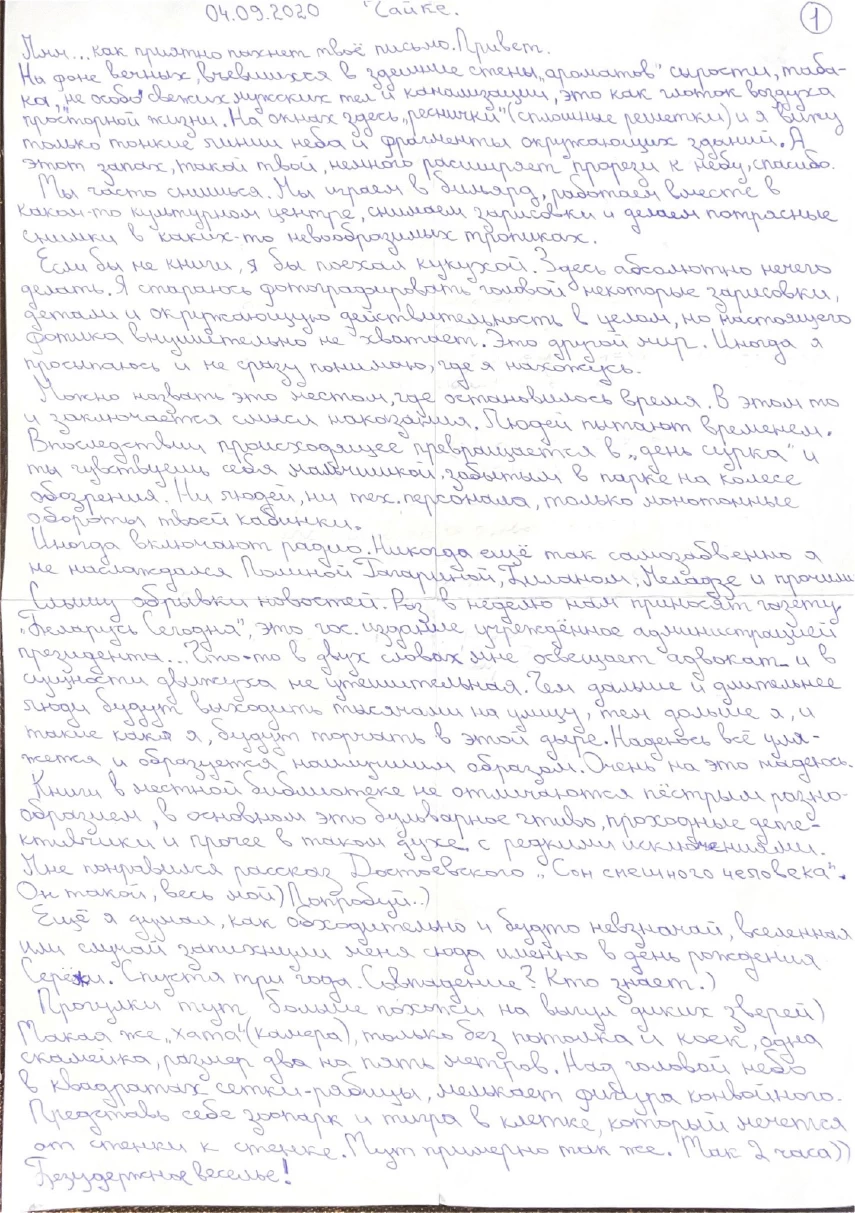 04.09.2020 Чайке. 1
Ммм... как приятно пахнет твоё письмо. Привет.
На фоне вечных, въевшихся в здешние стены „ароматов" сырости, таба-
ка, не особо свежих мужских тел и канализации, это как глоток воздуха
просторной жизни. На окнах здесь „реснички" (сплошные решетки) и я вижу
только тонкие линии неба и фрагменты окружающих зданий. А
этот запах, такой твой, немного расширяет прорези к небу, спасибо.
Ты часто снишься. Мы играем в бильярд, работаем вместе в
каком-то культурном центре, снимаем зарисовки и делаем потрясные
снимки в каких-то невообразимых тропиках.
Если бы не книги, я бы поехал кукухой. Здесь абсолютно нечего
делать. Я стараюсь фотографировать головой некоторые зарисовки,
детали и окружающую действительность в целом, но настоящего
фотика внушительно не хватает. Это другой мир. Иногда я
просыпаюсь и не сразу понимаю, где я нахожусь.
Можно назвать это местом, где остановилось время. В этом то
и заключается смысл наказания. Людей пытают временем.
Впоследствии происходящее превращается в „день сурка" и
ты чувствуешь себя мальчишкой, забытым в парке на колесе
обозрения. Ни людей, ни тех. персонала, только монотонные
обороты твоей кабинки.
Иногда включают радио. Никогда ещё так самозабвенно я
не наслаждался Полиной Гагариной, Биланом, Меладзе и прочими
Слышу обрывки новостей. Раз в неделю нам приносят газету
„Беларусь Сегодня", это гос. издание учреждённое администрацией
президента... Что-то в двух словах мне освещает адвокат и в
сущности движуха не утешительная. Чем дальше и длительнее
люди будут выходить тысячами на улицу, тем дольше я, и
такие как я, будут торчать в этой дыре. Надеюсь всё уля-
жется и образуется наилучшим образом. Очень на это надеюсь.
Книги в местной библиотеке не отличаются пёстрым разно-
образием, в основном это бульварное чтиво, проходные дете-
ктивчики и прочее в таком духе с редкими исключениями.
Мне понравился рассказ Достоевского „Сон смешного человека".
Он такой, весь мой) Попробуй..)
Ещё я думал, как обходительно и будто невзначай, вселенная
или случай запихнули меня сюда именно в день рождения
Серёжи. Спустя три года. Совпадение? Кто знает.)
Прогулки тут, больше похожи на выгул диких зверей)
Такая же „хата" (камера), только без потолка и коек, одна
скамейка, размер два на пять метров. Над головой небо
в квадратах сетки-рябицы, мелькает фигура конвойного.
Представь себе зоопарк и тигра в клетке, который мечется
от стенки к стенке. Тут примерно так же. Так 2 часа))
Безудержное веселье!